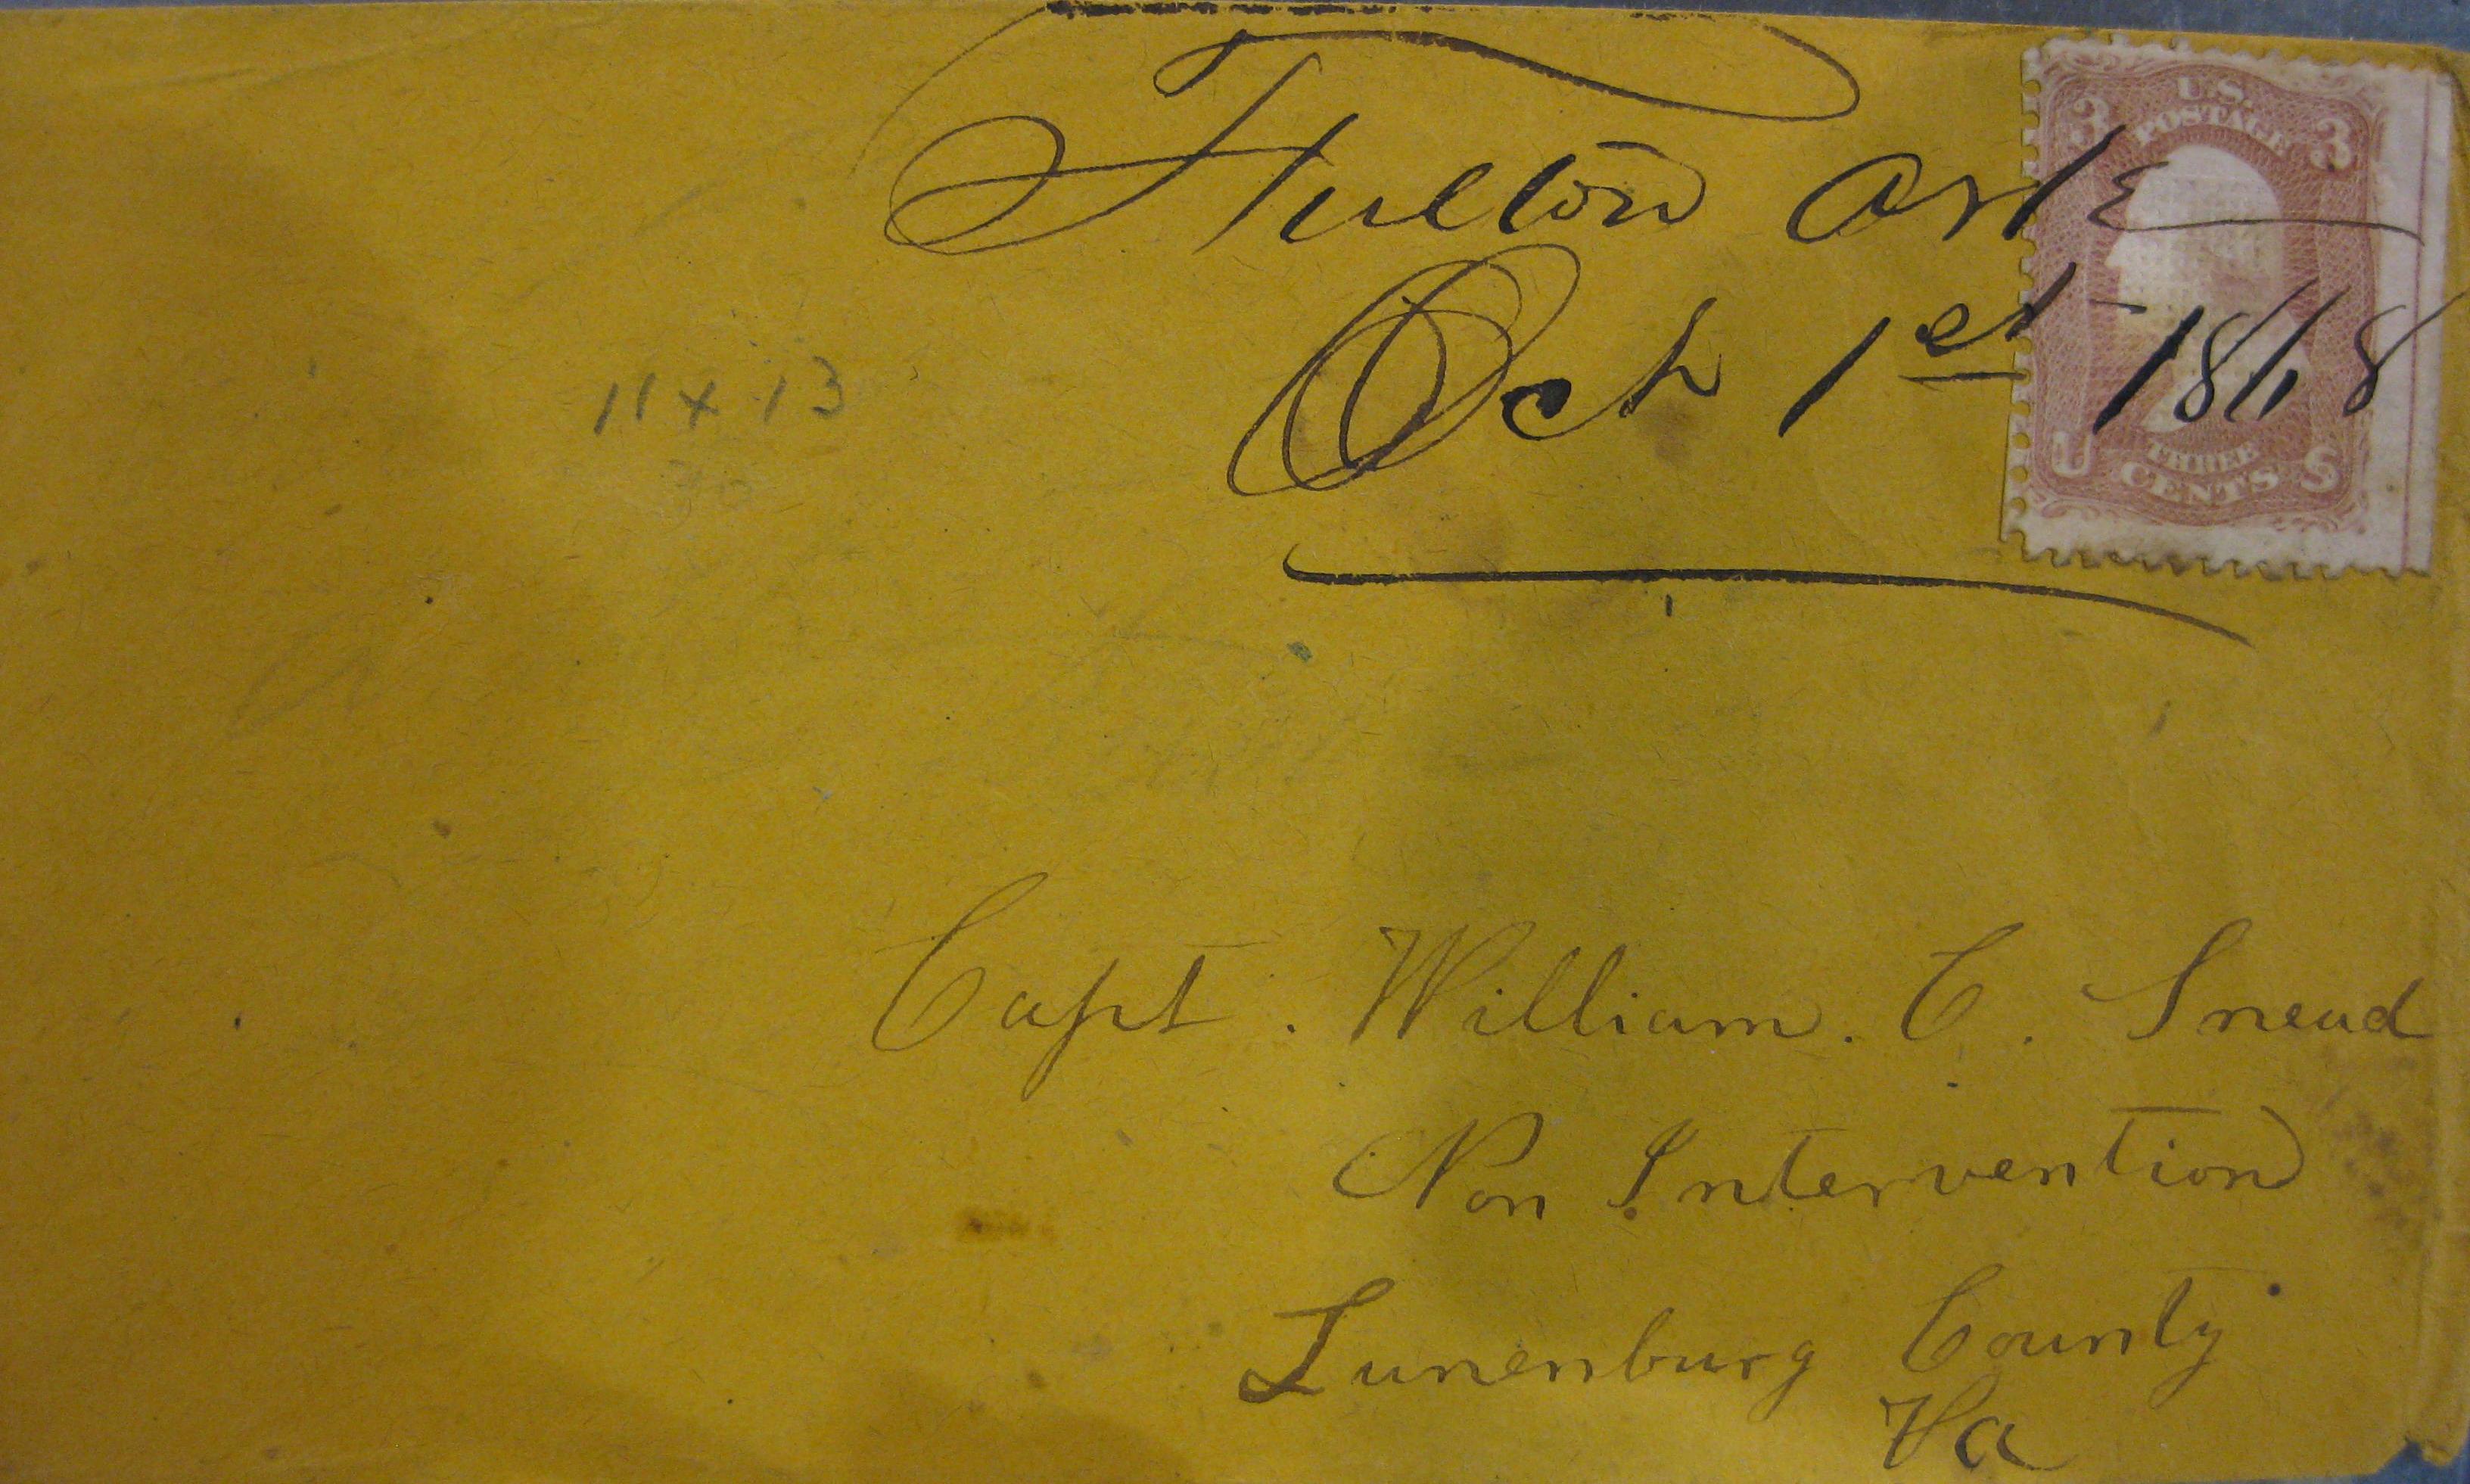 Fulton Ark
Oct 1st 1868
U.S.
POSTAGE
3 3
U THREE S
CENTS
11 x 13
30
Capt. William. C. Snead
Non Intervention
Lunenburg County
Va